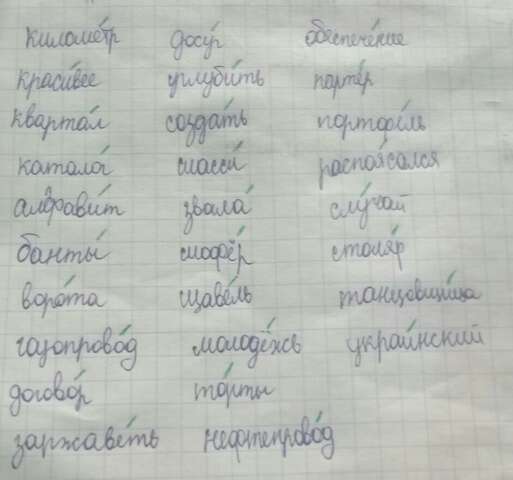 киломе́тр досу́г обеспече́ние
краси́вее углуби́ть парте́р
кварта́л созда́ть портфе́ль
катало́г шасси́ распоя́сался
алфави́т звала́ слу́чай
банты́ шофёр столя́р
воро́та щаве́ль танцовщи́ца
газопрово́д молодёжь украи́нский
догово́р то́рты
заржаве́ть нефтепрово́д